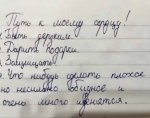 Путь к моему сердцу!
Быть зеркалом.
Дарить подарки.
Защищать!
Что нибудь сделать плохое
но несильно обидное и
очень много извенятся.